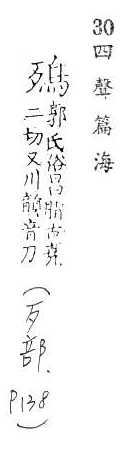 30 四聲篇海
郭氏俗昌脂古堯
二切又川韻音刀
(歹部. P138)